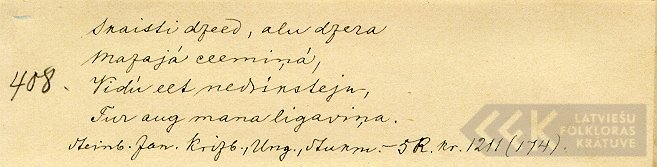 Skaisti dzeed, alu dzera
Mazajá ceemiņá,
408. Vidú eet nedrinsteju,
Tur aug mana ligaviņa.
Steinb. Jan. Krizb., Ung., Stukm. – 5 R. Nr. 1211 (174).
LATVIEŠU
FOLKLORAS
KRĀTUVE